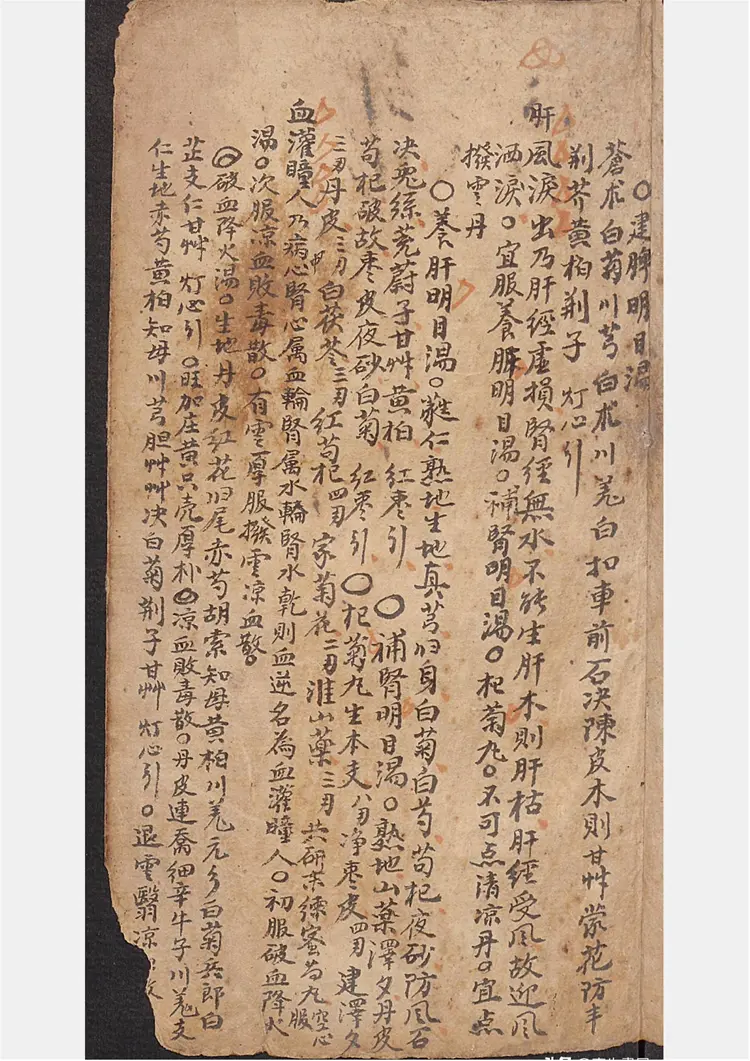 〇建脾明目湯
蒼朮白菊川芎白朮川羌白扣車前石决陳皮木則甘艸蒙花防丰
荆芥黄柏荆子 灯心引
肝風淚出乃肝經虛損腎經無水不能生肝木則肝枯肝經受风故迎风
洒淚〇宜服養肝明目湯〇補腎明目湯〇杞菊九〇不可点清凉丹〇宜点
撥雲丹
〇養肝明目湯〇蕤仁熟地生地真芎归身白菊白芍苟杞夜砂防风石
决兎絲茺蔚子甘艸黄柏 红枣引 〇補腎明目湯〇熟地山藥澤夕丹皮
苟杞破故枣皮夜砂白菊 红枣引〇杞菊九生本支八刄净枣皮四刄建澤夕
三刄丹皮三刄白茯苓三刄红苟杞四刄 家菊花二刄淮山藥三刄 共研末煉蜜为九空心服
血灌瞳人乃病心腎心属血輪腎属水輪腎水乾則血逆名為血灌瞳人〇初服破血降火
湯〇次服凉血敗毒散〇有雲厚服撥雲凉血散〇
〇破血降火湯〇生地丹皮红花归尾赤芍胡索知母黄柏川羌元参白菊兵郎白
芷支仁甘艸 灯心引〇旺加庄黄只壳厚朴〇凉血敗毒散〇丹皮連喬细辛牛子川羌支
仁生地赤芍黄柏知母川芎胆艸艸决白菊荆子甘艸 灯心引〇退雲翳凉